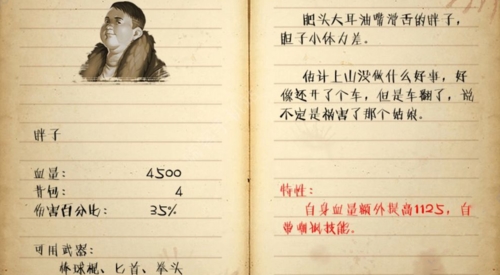 胖子
血量: 4500
背包: 4
伤害百分比: 35%
可用武器:
棒球棍、匕首、拳头
肥头大耳油嘴滑舌的胖子,
胆子小体力差。
估计上山没做什么好事,好
像还开了个车,但是车翻了,说
不定是祸害了那个姑娘。
特性:
自身血量额外提高1125,自
带嘲讽技能。